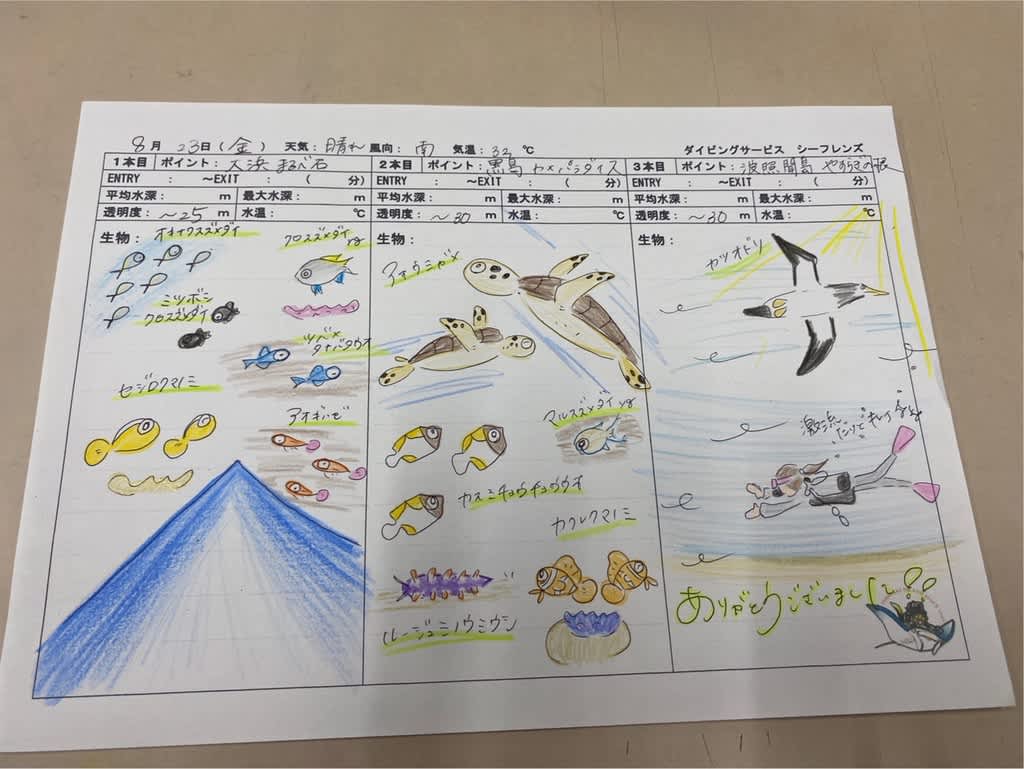 8月 23日(金) 天気: 晴れ 風向: 南 気温: 32 ℃
ダイビングサービス シーフレンズ
1本目 ポイント: 大浜 まるべ石
ENTRY : ~EXIT : ( 分)
平均水深: m 最大水深: m
透明度: ~25 m 水温: ℃
生物:
オキナワスズメダイ
クロスズメダイ yg
ミツボシ
クロスズメダイ
ツバメ
タナバタウオ
セジロクマノミ
アオギハゼ
2本目 ポイント: 黒島 カメパラダイス
ENTRY : ~EXIT : ( 分)
平均水深: m 最大水深: m
透明度: ~30 m 水温: ℃
生物:
アオウミガメ
マルスズメダイ yg
カスミチョウチョウウオ
カクレクマノミ
ルージュミノウミウシ
3本目 ポイント: 波照間島 やすらぎの根
ENTRY : ~EXIT : ( 分)
平均水深: m 最大水深: m
透明度: ~30 m 水温: ℃
生物:
カツオドリ
激流
ありがとうございました